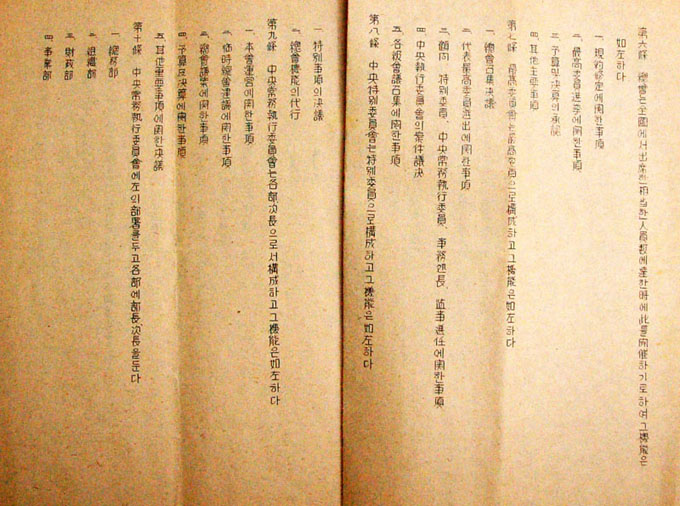 第六條 總會는 全國에서 出席한 相當한 人員數에 達한 時에 此를 開催하기로 하여 그 機能은
如左하다
一、規約修定에 關한 事項
二、最高委員選季에 關한 事項
三、予算及決算의 承認
四、其他主要事項
第七條 最高委員會는 最高委員으로 構成하고 그 機能은 如左하다
一、總會召集決議
二、代表最高委員選出에 關한 事項
三、顧問、特別委員、中央常務執行委員、事務總長、監事選任에 關한 事項
四、中央執行委員會의 案件議決
五、各級會議召集에 關한 事項
第八條 中央特別委員會는 特別委員으로 構成하고 그 機能은 如左하다
一、特別事項의 決議
二、總會機能의 代行
第九條 中央常務執行委員會는 各部次長으로서 構成하고 그 機能은 如左하다
一、本會運營에 關한 事項
二、臨時總會建議에 關한 事項
三、總會議案에 關한 事項
四、予算及決算에 關한 事項
五、其他重要事項에 關한 決議
第十條 中央常務執行委員會에 左의 部署를 두고 各部에 部長、次長을 둔다
一、總務部
二、組織部
三、財政部
四、事業部